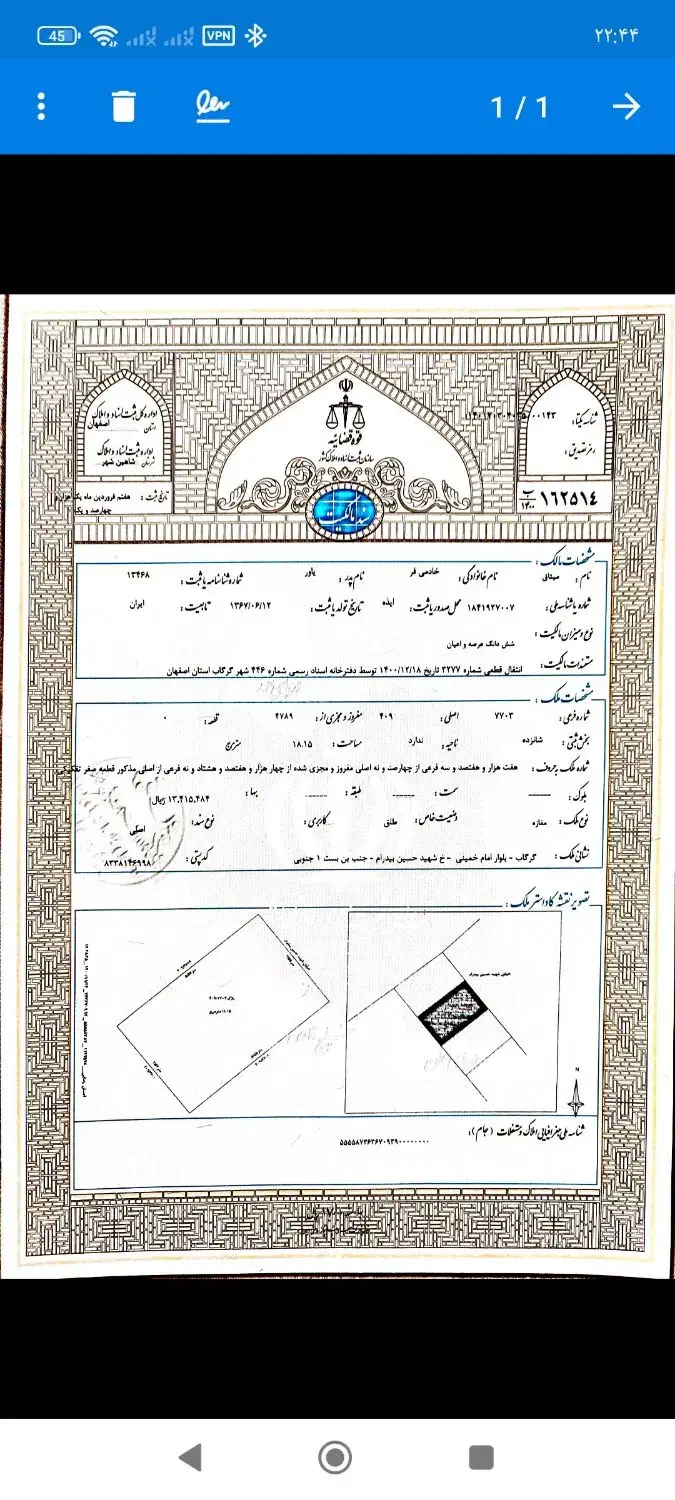 45
VPN
۲۲:۴۴
1 / 1
اداره کل ثبت اسناد و املاک
استان اصفهان
اداره ثبت اسناد و املاک
شهرستان شاهین شهر
قوه قضاییه
سازمان ثبت اسناد و املاک کشور
شناسه یکتا:
رمز تصدیق:
سند مالکیت
۱۶۲۵۱۴ ب ۱۴۰۰
تاریخ ثبت : هفتم فروردین ماه یک هزار و چهارصد و یک
مشخصات مالک :
نام : میثاق نام خانوادگی : خادمی فر نام پدر : یاور شماره شناسنامه یا ثبت : ۱۳۴۶۸
شماره یا شناسه ملی : ۱۸۴۱۹۲۷۰۰۷ محل صدور یا ثبت : ایذه تاریخ تولد یا ثبت : ۱۳۶۷/۰۶/۱۲ تابعیت : ایران
نوع و میزان مالکیت : شش دانگ عرصه و اعیان
مستندات مالکیت : انتقال قطعی شماره ۳۲۷۷ تاریخ ۱۴۰۰/۱۲/۱۸ توسط دفترخانه اسناد رسمی شماره ۴۴۶ شهر گرگاب استان اصفهان
مشخصات ملک :
شماره فرعی : ۷۷۰۳ اصلی : ۴۰۹ مفروز و مجزی از : ۴۷۸۹ قطعه : ۰
بخش ثبتی : شانزده ناحیه : ندارد مساحت : ۱۸.۱۵ مترمربع
شماره ملک به حروف : هفت هزار و هفتصد و سه فرعی از چهارصد و نه اصلی مفروز و مجزی شده از چهار هزار و هفتصد و هشتاد و نه فرعی از اصلی مذکور قطعه صفر تفکیکی
بلوک : ____ سمت : ____ طبقه : ____ بها : ۱۳،۴۱۵،۴۸۴ ریال
نوع ملک : مغازه وضعیت خاص : طلق کاربری : نوع سند : اصلی
نشانی ملک : گرگاب - بلوار امام خمینی - خ شهید حسین بیدرام - جنب بن بست ۱ جنوبی کد پستی : ۸۳۳۸۱۴۶۹۹۸
تصویر نقشه کاداستر ملک :
خیابان شهید حسین بیدرام
N
شناسه ملی جغرافیایی املاک و مستغلات (جام) :